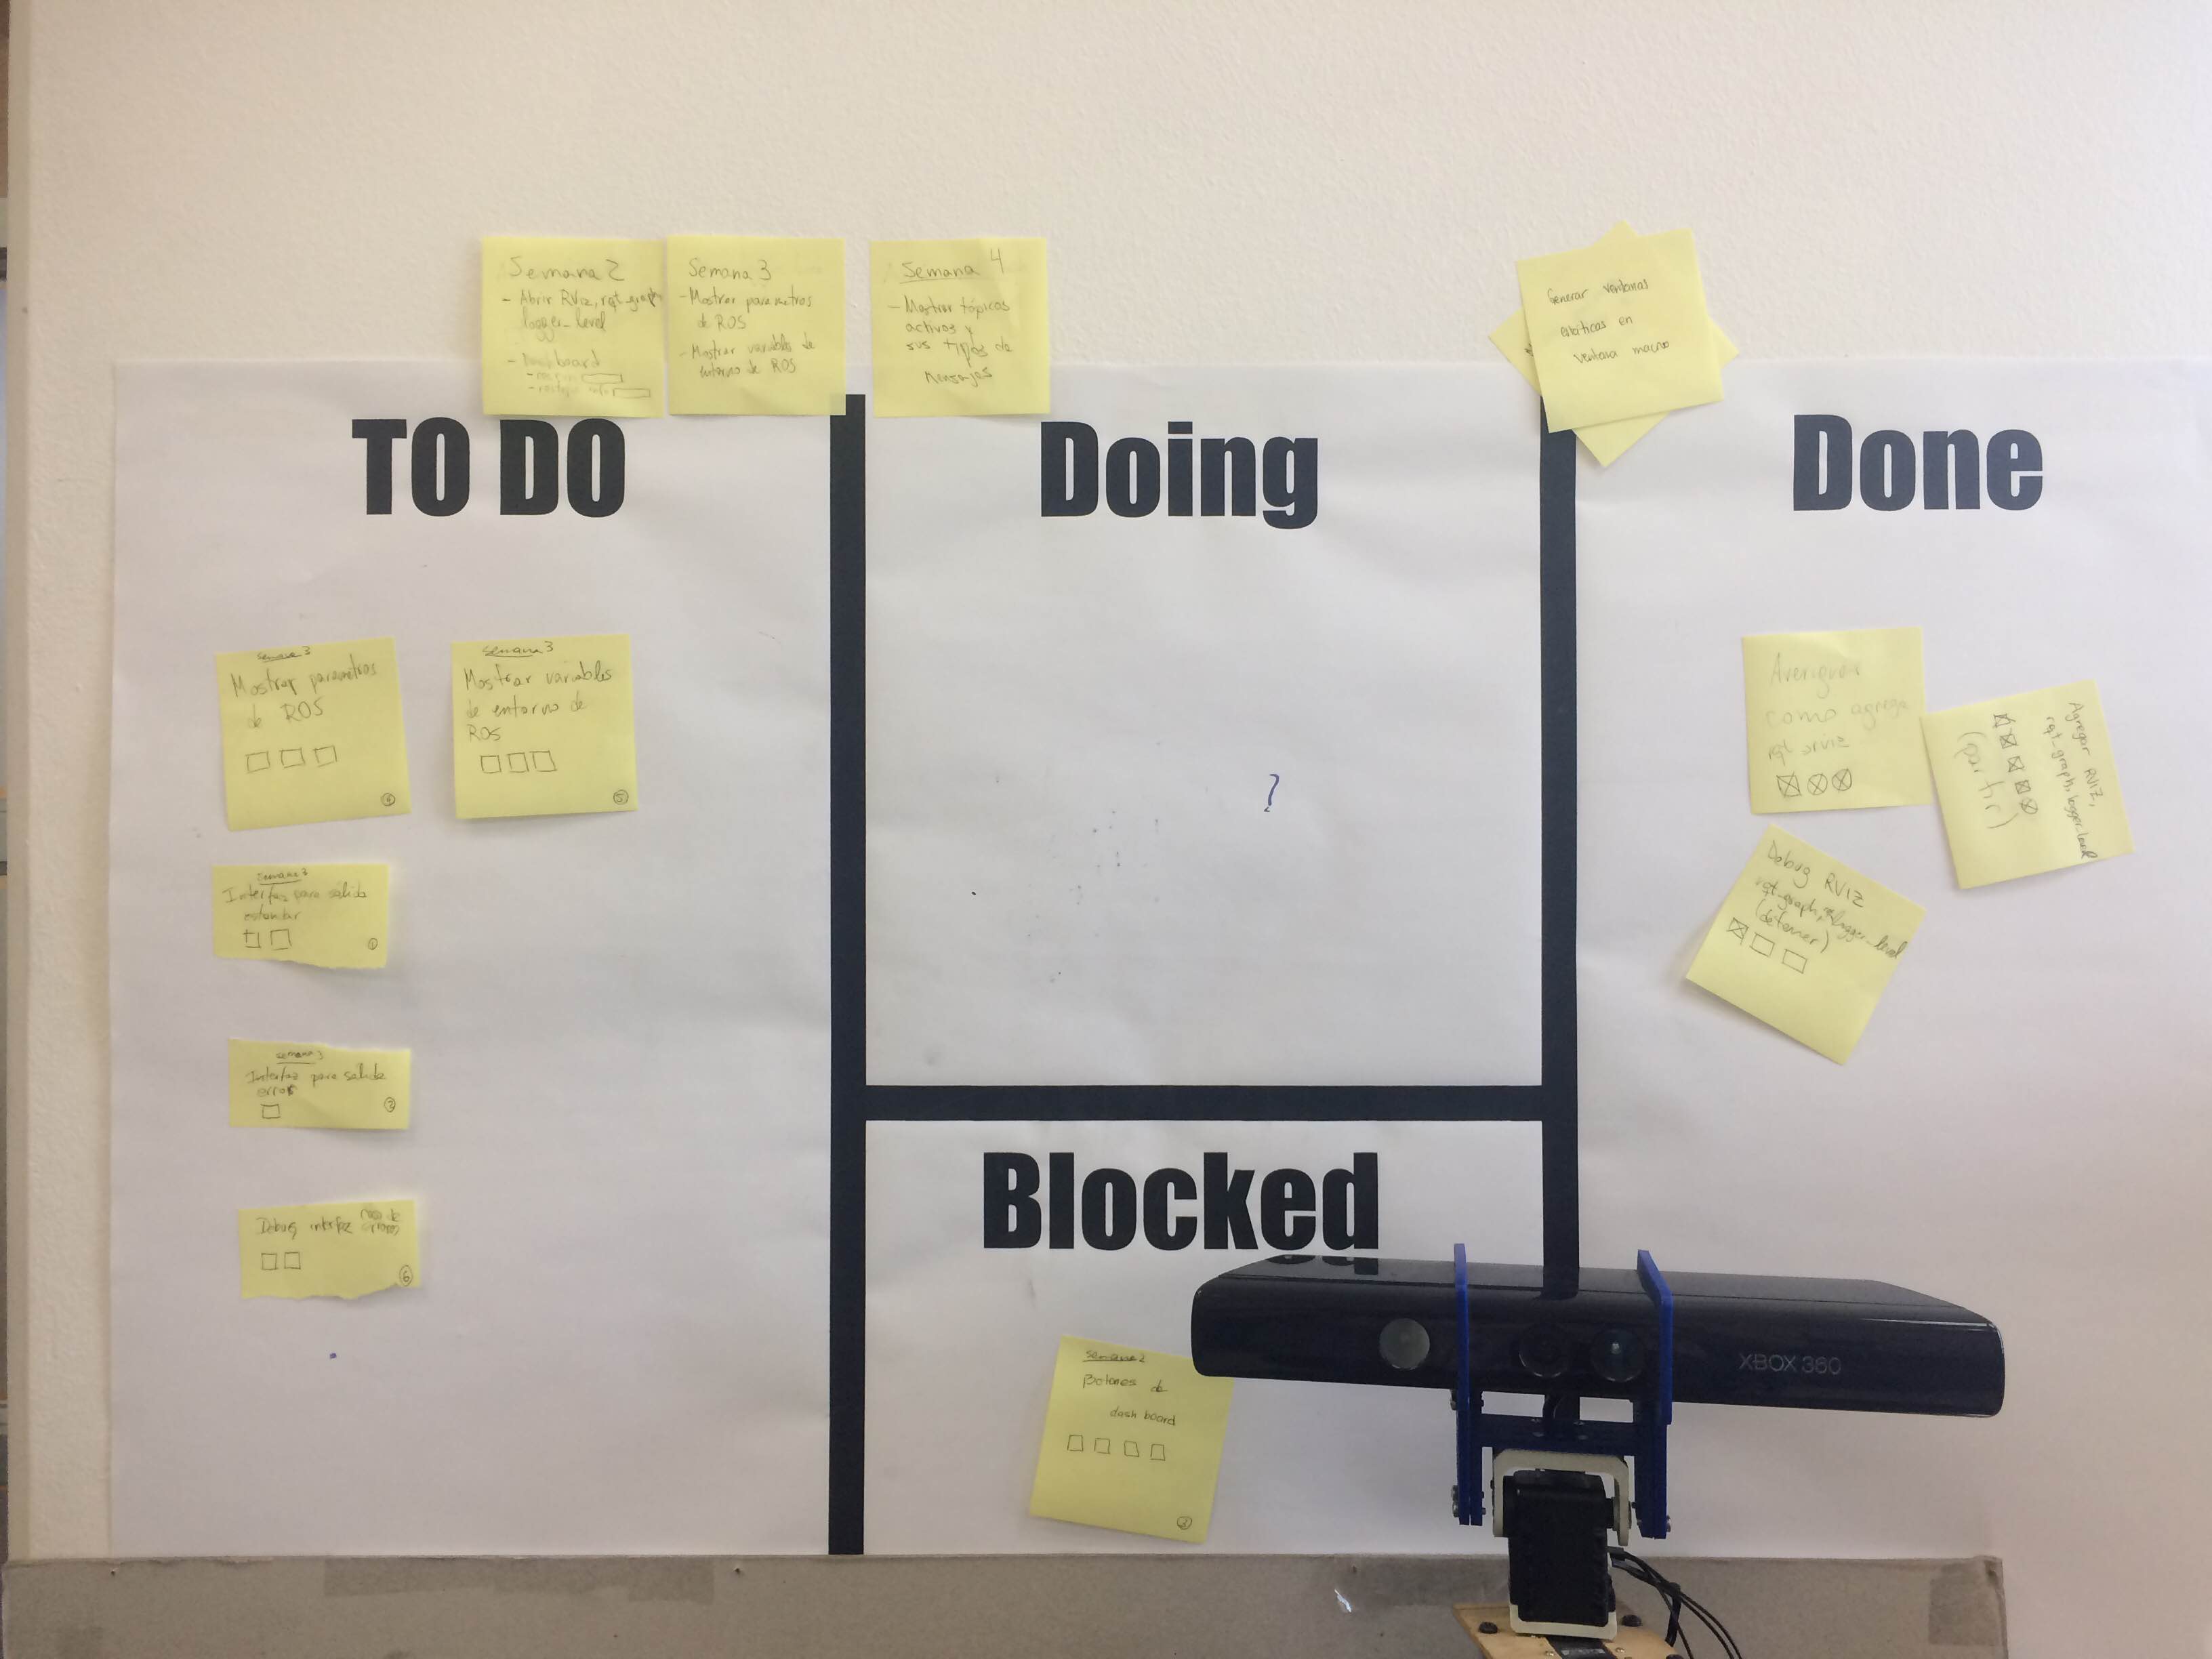 Semana 2
- Abrir RViz, rqt_graph
logger_level
- Dashboard
Semana 3
- Mostrar parametros
de ROS
- Mostrar variables de
entorno de ROS
Semana 4
- Mostrar tópicos
activos y
sus tipos de
mensajes
Generar ventanas
en
ventana macro
TO DO
Doing
Done
Blocked
Semana 3
Mostrar parametros
de ROS
4
Semana 3
Mostrar variables
de entorno de
ROS
5
Semana 3
Interfaz para salida
estandar
1
Semana 3
Interfaz para salida
error
2
Debug interfaz
6
?
Averiguar
como agregar
rqt
Agregar RVIZ,
rqt-graph, logger_level
(partir)
Debug RVIZ
rqt-graph, logger_level
(detener)
Semana 2
Botones de
dash board
2
XBOX 360